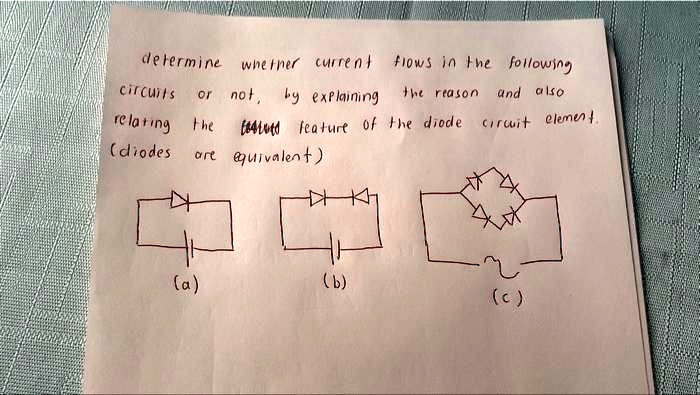 determine whether current flows in the following
circuits or not, by explaining the reason and also
relating the feature of the diode circuit element.
(diodes are equivalent)
(a) (b) (c)